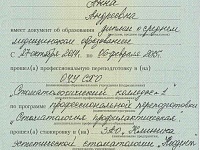 Анна
Андреевна
имеет документ об образовании диплом о среднем
медицинском образовании
27 октября 2014 по 06 февраля 2015.
прошел(а) профессиональную переподготовку в (на)
ОЧУ СПО
"Стоматологический колледж №1"
по программе профессиональной переподготовки
"Стоматология профилактическая"
прошел(а) стажировку в (на) ЗАО "Клиника
эстетической стоматологии